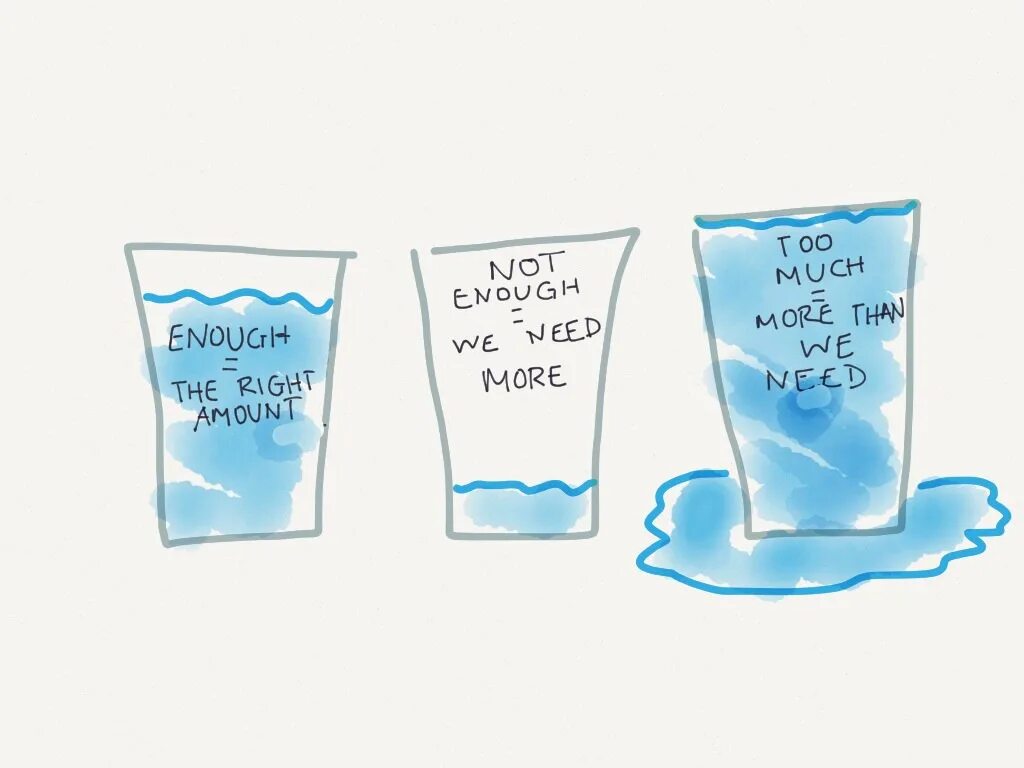 ENOUGH
=
THE RIGHT
AMOUNT
NOT
ENOUGH
=
WE NEED
MORE
TOO
MUCH
=
MORE THAN
WE
NEED